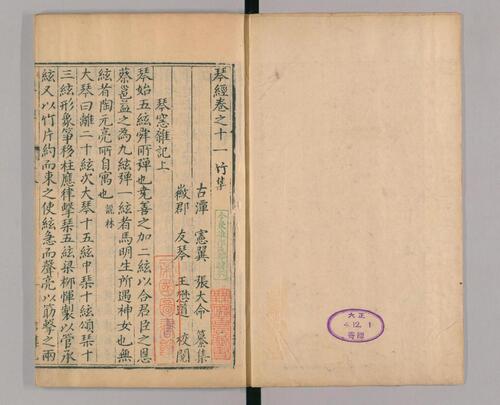 琴經卷之十一 竹集
古潭 憲翼 張大命 纂集
徽郡 友琴 王懋道 校閱
琴窓雜記上
琴始五絃舜所彈也堯善之加二絃以合君臣之恩
蔡邕益之為九絃彈一絃者馬明生所遇神女也無
絃者陶元亮所自寓也 說林
大琴曰離二十絃次大琴十五絃中琴十絃頌琴十
三絃形象箏移柱應律擊琴五絃梁柳惲製以管承
絃又以竹片約而束之使絃急而聲亮以筯擊之兩
大正
4.12.1
寄贈